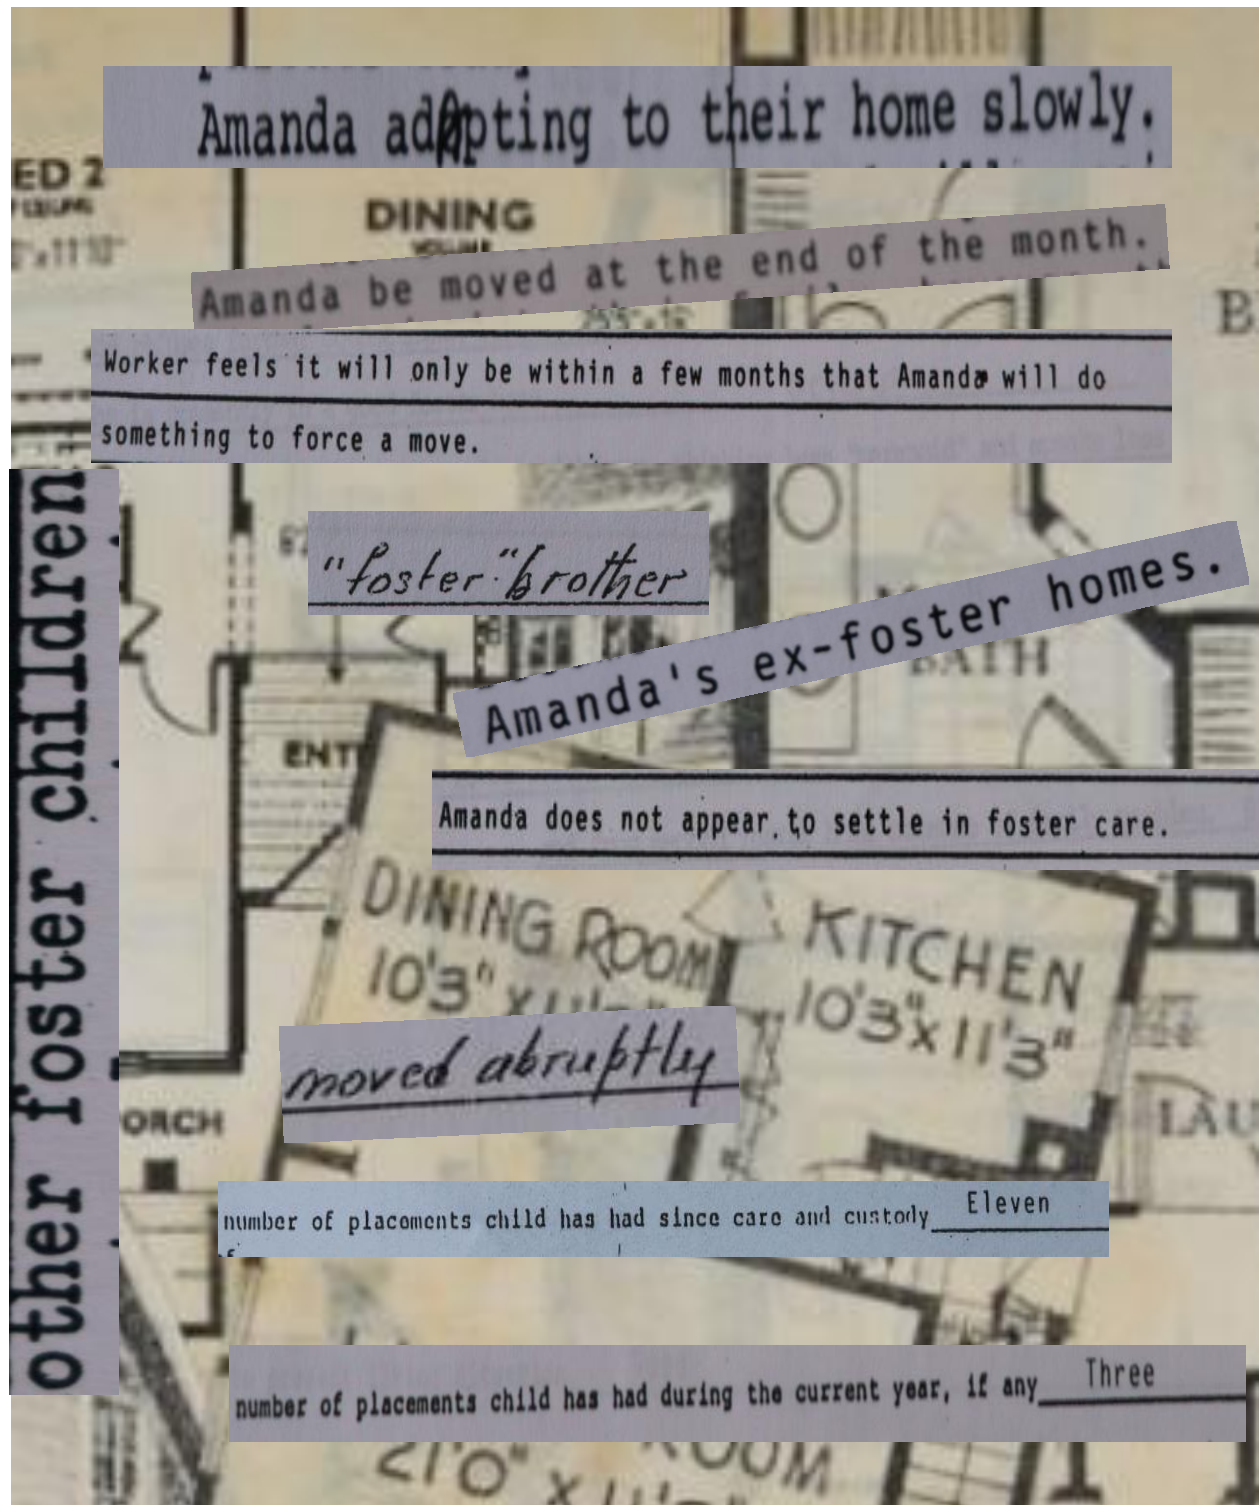 Amanda adapting to their home slowly.
ED 2
DINING
Amanda be moved at the end of the month.
B
Worker feels it will only be within a few months that Amanda will do
something to force a move.
other foster children
"foster" brother
Amanda's ex-foster homes.
BATH
ENT
Amanda does not appear to settle in foster care.
DINING ROOM
10'3" X
KITCHEN
10'3" X 11'3"
moved abruptly
ORCH
LAU
number of placements child has had since care and custody Eleven
number of placements child has had during the current year, if any Three
21'0" X
ROOM